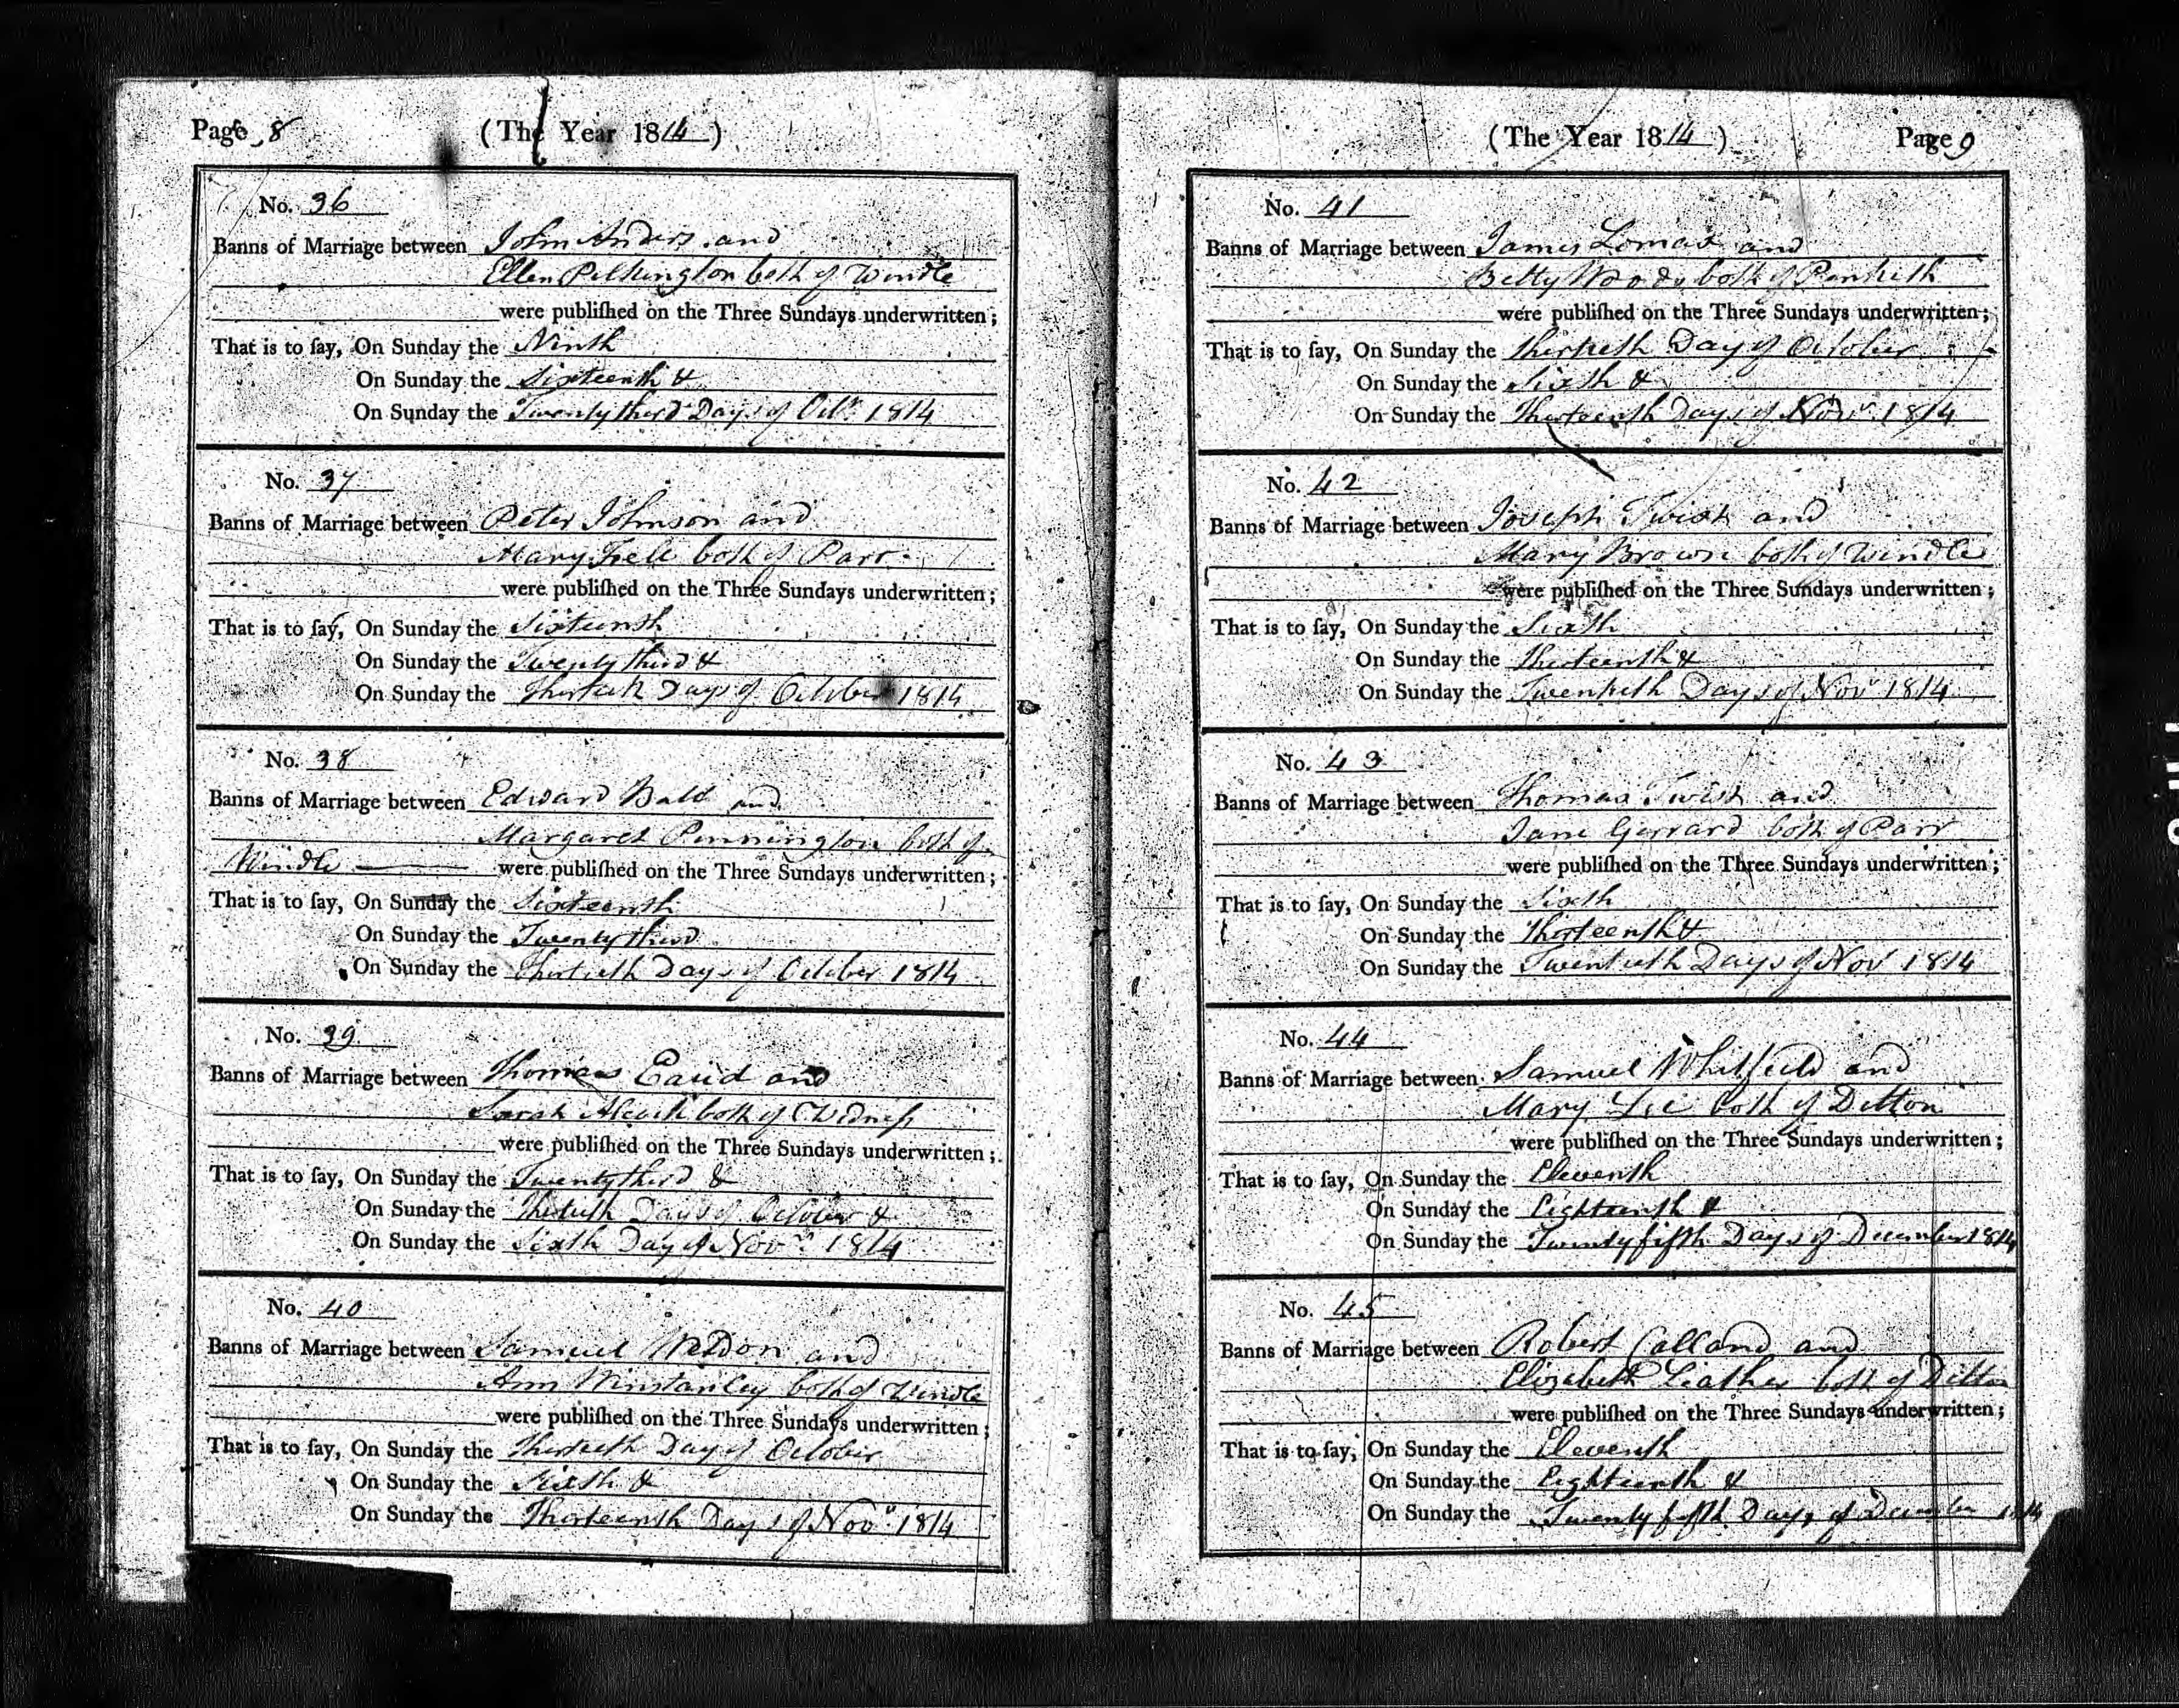 Page 8 (The Year 1814)
No. 36
Banns of Marriage between John Anders and
Ellen Pilkington both of Windle
were publiſhed on the Three Sundays underwritten;
That is to ſay, On Sunday the Ninth
On Sunday the Sixteenth &
On Sunday the Twenty third Days of Octr. 1814
No. 37
Banns of Marriage between Peter Johnson and
Mary Fell both of Parr
were publiſhed on the Three Sundays underwritten;
That is to ſay, On Sunday the Sixteenth
On Sunday the Twenty third &
On Sunday the Thirtieth Days of October 1814
No. 38
Banns of Marriage between Edward Bald and
Margaret Pennington both of
Windle were publiſhed on the Three Sundays underwritten;
That is to ſay, On Sunday the Sixteenth
On Sunday the Twenty third
On Sunday the Thirtieth Days of October 1814
No. 39
Banns of Marriage between Thomas and
Sarah both of Widness
were publiſhed on the Three Sundays underwritten;
That is to ſay, On Sunday the Twenty third &
On Sunday the Thirtieth Days of October &
On Sunday the Sixth Day of Novr. 1814
No. 40
Banns of Marriage between Samuel and
Ann Winstanley both of Windle
were publiſhed on the Three Sundays underwritten;
That is to ſay, On Sunday the Thirtieth Day of October
On Sunday the Sixth &
On Sunday the Thirteenth Days of Novr. 1814
(The Year 1814) Page 9
No. 41
Banns of Marriage between James Lomax and
Betty Woods both of Penketh
were publiſhed on the Three Sundays underwritten;
That is to ſay, On Sunday the Thirtieth Day of October
On Sunday the Sixth &
On Sunday the Thirteenth Days of Novr. 1814
No. 42
Banns of Marriage between Joseph Twist and
Mary Brown both of Windle
were publiſhed on the Three Sundays underwritten;
That is to ſay, On Sunday the Sixth
On Sunday the Thirteenth &
On Sunday the Twentieth Days of Novr 1814
No. 43
Banns of Marriage between Thomas Twist and
Jane Gerrard both of Parr
were publiſhed on the Three Sundays underwritten;
That is to ſay, On Sunday the Sixth
On Sunday the Thirteenth &
On Sunday the Twentieth Days of Novr 1814
No. 44
Banns of Marriage between Samuel Whitfield and
Mary Lee both of Ditton
were publiſhed on the Three Sundays underwritten;
That is to ſay, On Sunday the Eleventh
On Sunday the Eighteenth &
On Sunday the Twenty fifth Days of December 1814
No. 45
Banns of Marriage between Robert Calland and
Elizabeth Leather both of Ditton
were publiſhed on the Three Sundays underwritten;
That is to ſay, On Sunday the Eleventh
On Sunday the Eighteenth &
On Sunday the Twenty fifth Days of December 1814